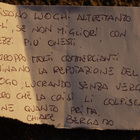 SSONO LUOGHI ALTRETTANTO
LI, SE NON MIGLIORI, CON
ZZI PIÙ ONESTI.
TROPPO MOLTI COMMERCIANTI
INANO LA REPUTAZIONE DEL
EGO, LUCRANDO SENZA VERGO
RO CHE LA CRISI LI COLPISCA
NE QUANTO PRIMA
CHIARE BERGAMO